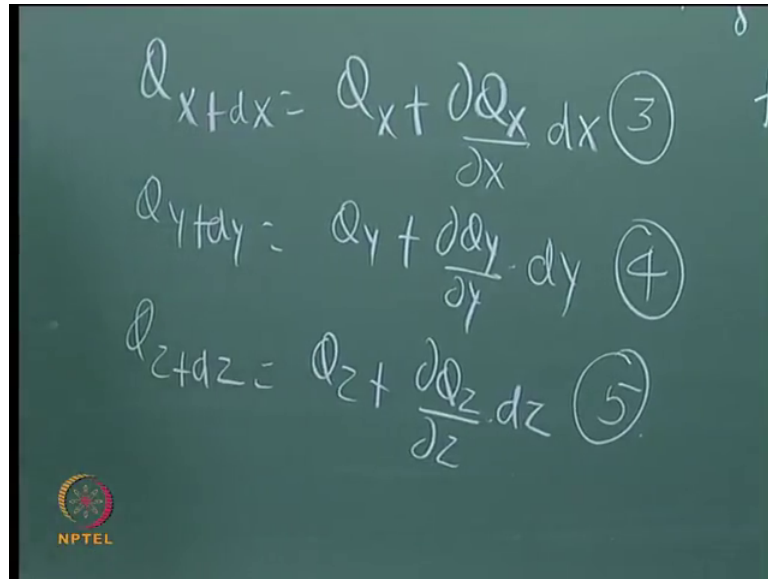 Q_{x+dx} = Q_x + ∂Q_x/∂x dx (3)
Q_{y+dy} = Q_y + ∂Q_y/∂y · dy (4)
Q_{z+dz} = Q_z + ∂Q_z/∂z · dz (5)
NPTEL